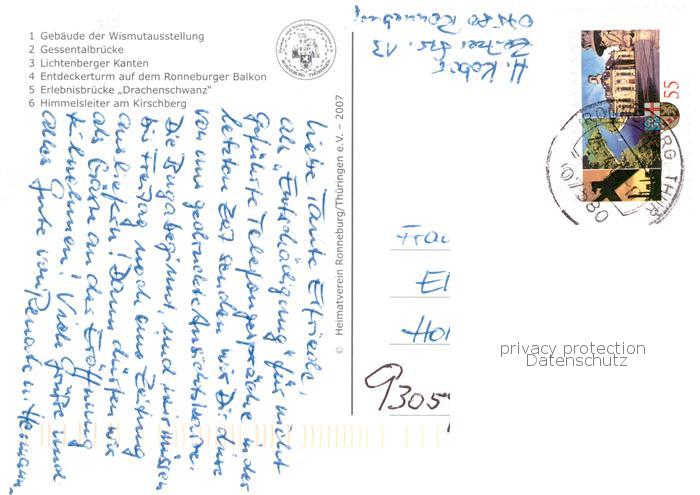 1 Gebäude der Wismutausstellung
2 Gessentalbrücke
3 Lichtenberger Kanten
4 Entdeckerturm auf dem Ronneburger Balkon
5 Erlebnisbrücke „Drachenschwanz“
6 Himmelsleiter am Kirschberg
Liebe Tante Elfriede,
als „Entschädigung“ für nicht
geführte Telefongespräche in der
letzten Zeit senden wir Dir diese
von uns gedruckte Ansichtskarte.
Die Buga beginnt, und wir müssen
bis Freitag noch eine Zeitung
ausliefern! Dann dürfen wir
als Gäste an der Eröffnung
teilnehmen! Viele Grüße und
alles Gute von Renate u. Hermann
© Heimatverein Ronneburg/Thüringen e.V. – 2007
H. Kober
Zeitzer Str. 13
07580 Ronneburg
55
Frau
El
Ho
9305
privacy protection
Datenschutz